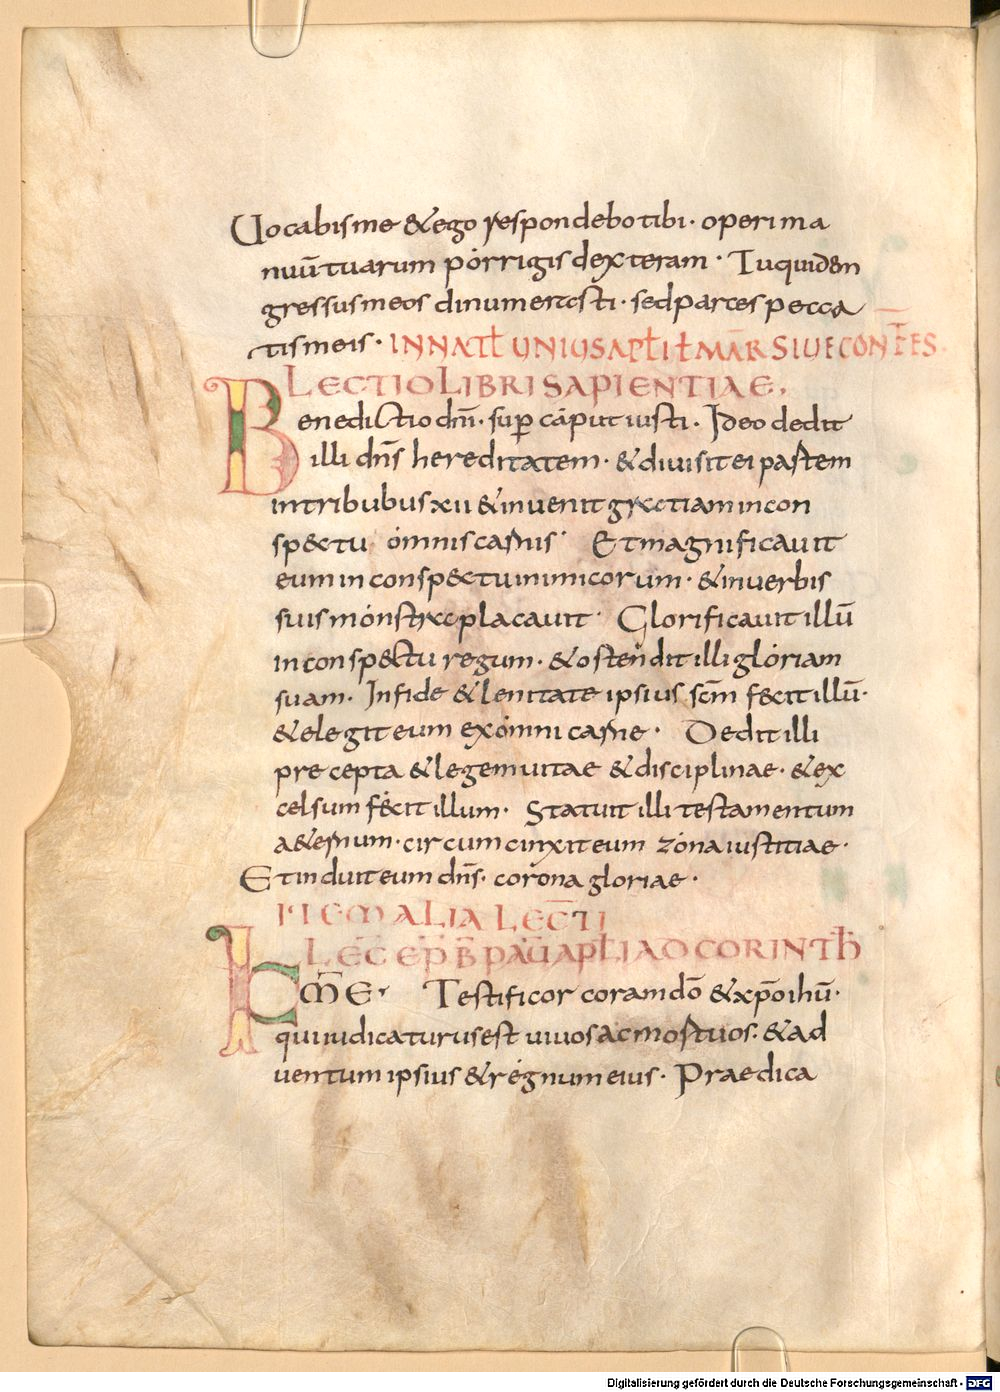 Uocabis me & ego respondebo tibi· operi ma
nuū tuarum porrigis dexteram· Tu quidē
gressus meos dinumerasti· sed parces pecca
tis meis· IN NAT̄ UNIUS APL̄I Ł MAR̄ SIUE CONF̄ES
LECTIO LIBRI SAPIENTIAE,
Benedictio dn̄i· sup̄ caput iusti· Ideo dedit
illi dn̄s hereditatem· & diuisit ei partem
in tribubus xii & inuenit gratiam in con
spectu omnis carnis· Et magnificauit
eum in conspectu inimicorum· & in uerbis
suis monstra placauit· Glorificauit illū
in conspectu regum· & ostendit illi gloriam
suam· In fide & lenitate ipsius sc̄m fecit illū·
& elegit eum ex omni carne· Dedit illi
precepta & legem uitae & disciplinae· & ex
celsum fecit illum· Statuit illi testamentum
a&ernum· circumcinxit eum zona iustitiae·
Et induit eum dn̄s· corona gloriae·
ITEM ALIA LECT̄
LEC̄ EP̄ B̄ PAU̅ APL̄I AD CORINTH̄
K M̄E· Testificor coram dō & xp̄o ihū·
qui iudicaturus est uiuos ac mortuos· & ad
uentum ipsius & regnum eius· Praedica
Digitalisierung gefördert durch die Deutsche Forschungsgemeinschaft - DFG